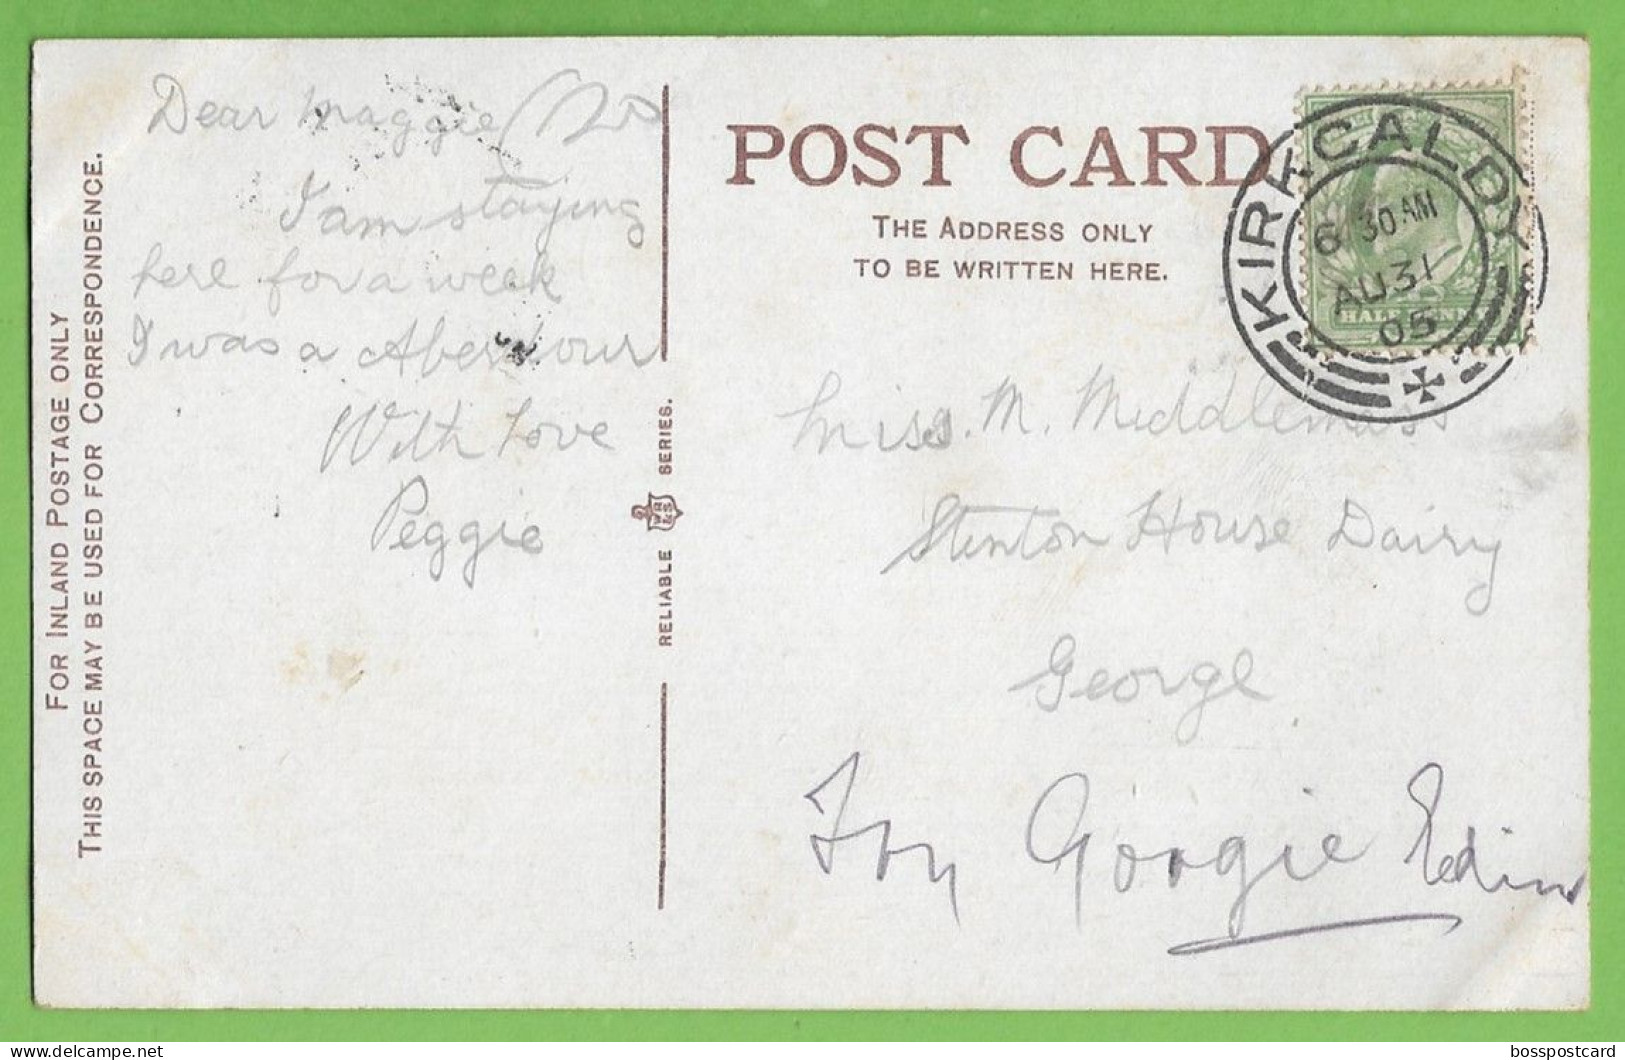 FOR INLAND POSTAGE ONLY
THIS SPACE MAY BE USED FOR CORRESPONDENCE.
Dear Maggie
I am staying
here for a week
I was a Aberdour
With Love
Peggie
RELIABLE WR&S SERIES.
POST CARD
THE ADDRESS ONLY
TO BE WRITTEN HERE.
KIRKCALDY
6 30 AM
AU 31
05
HALF PENNY
Miss. M. Middlemass
Stenton House Dairy
George
Try Goorgie Edinr
bosspostcard